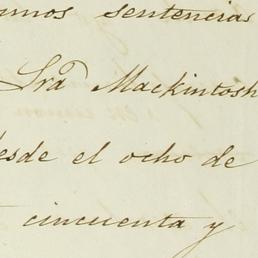 sentencias
Sra Mackintosh
desde el ocho de
cincuenta y